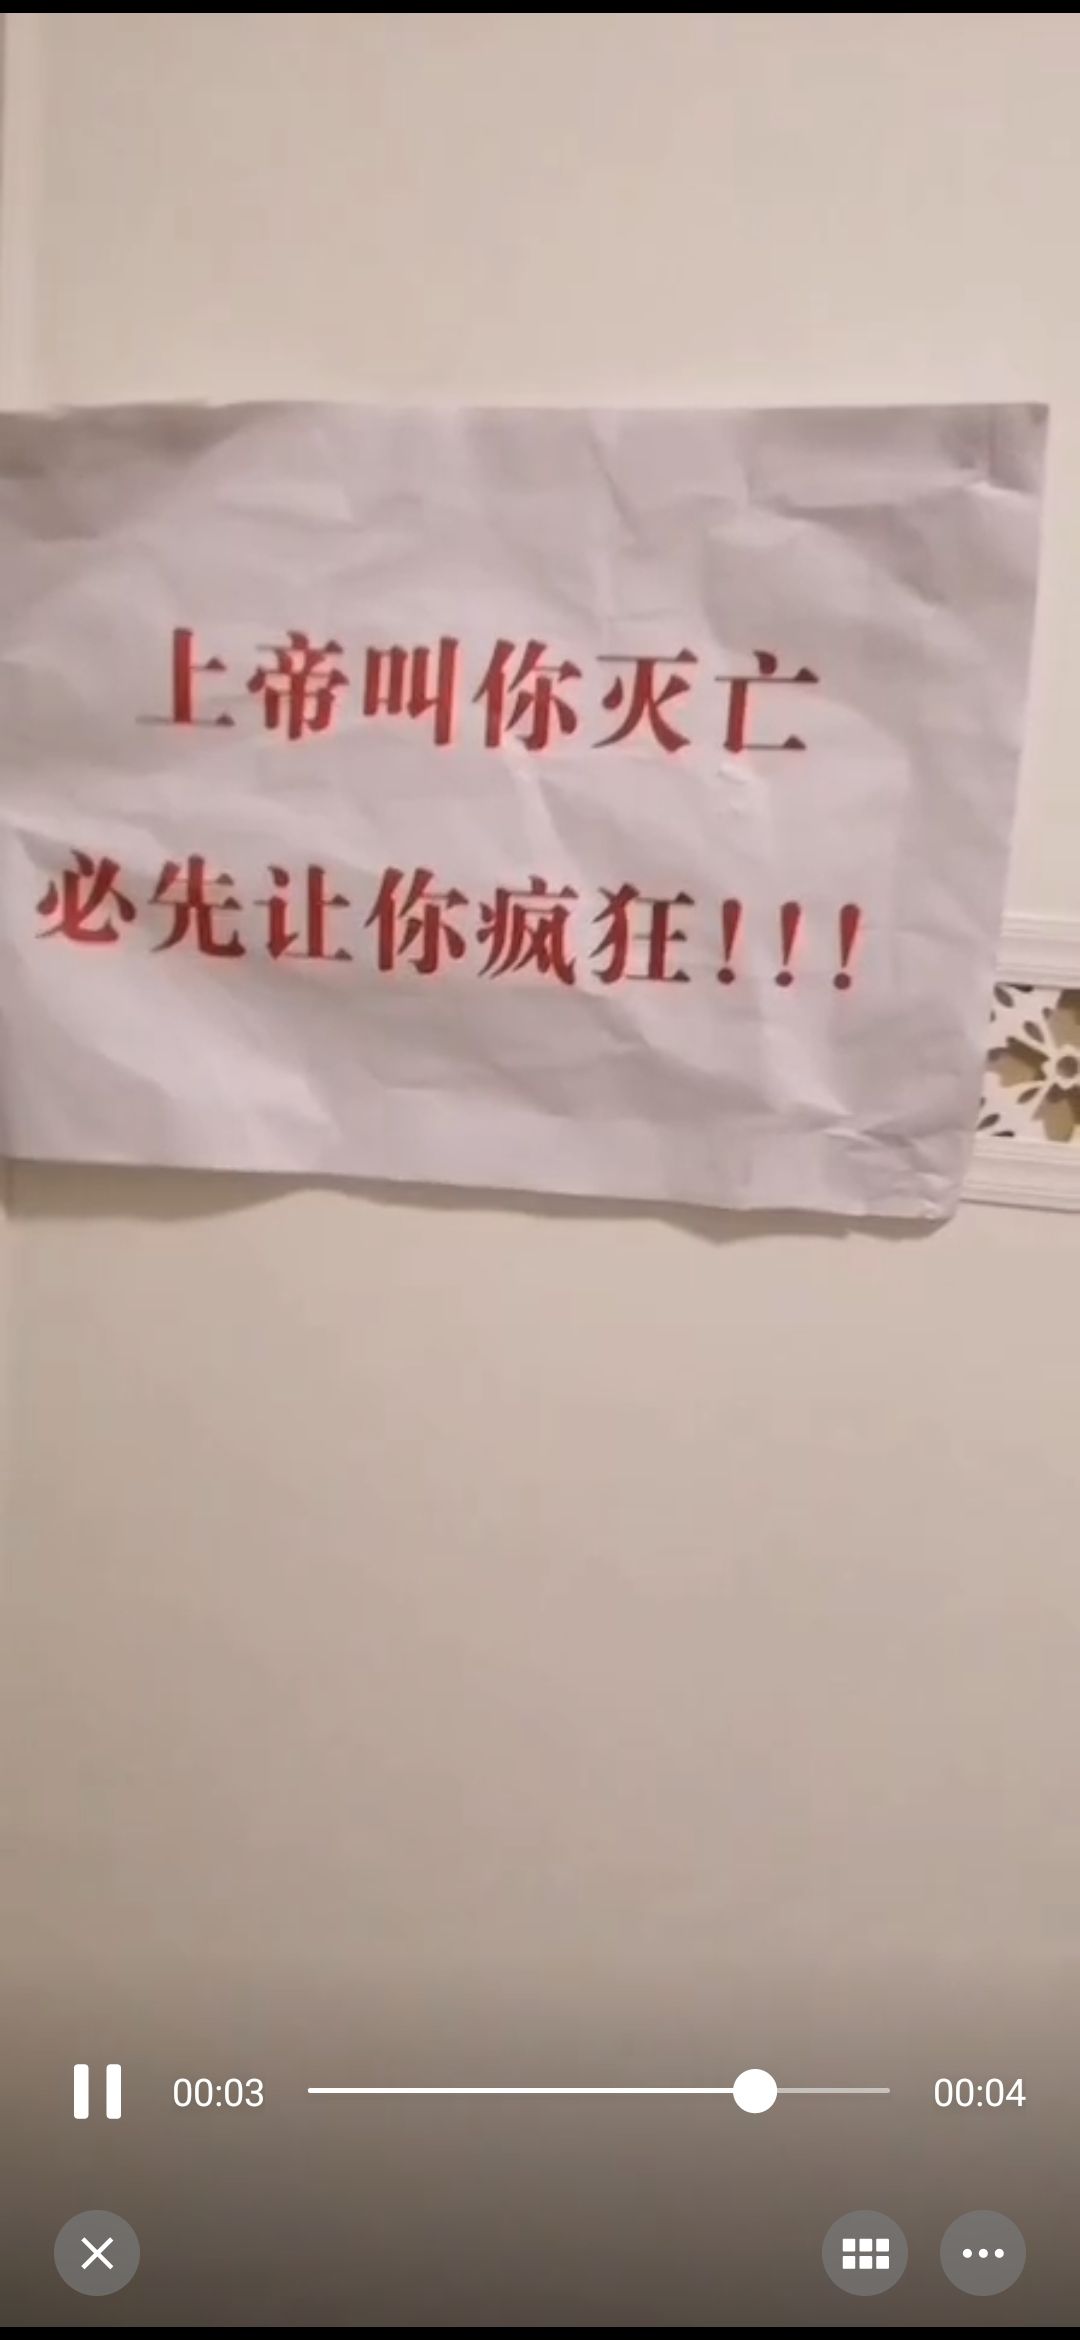 上帝叫你灭亡
必先让你疯狂!!!
00:03
00:04